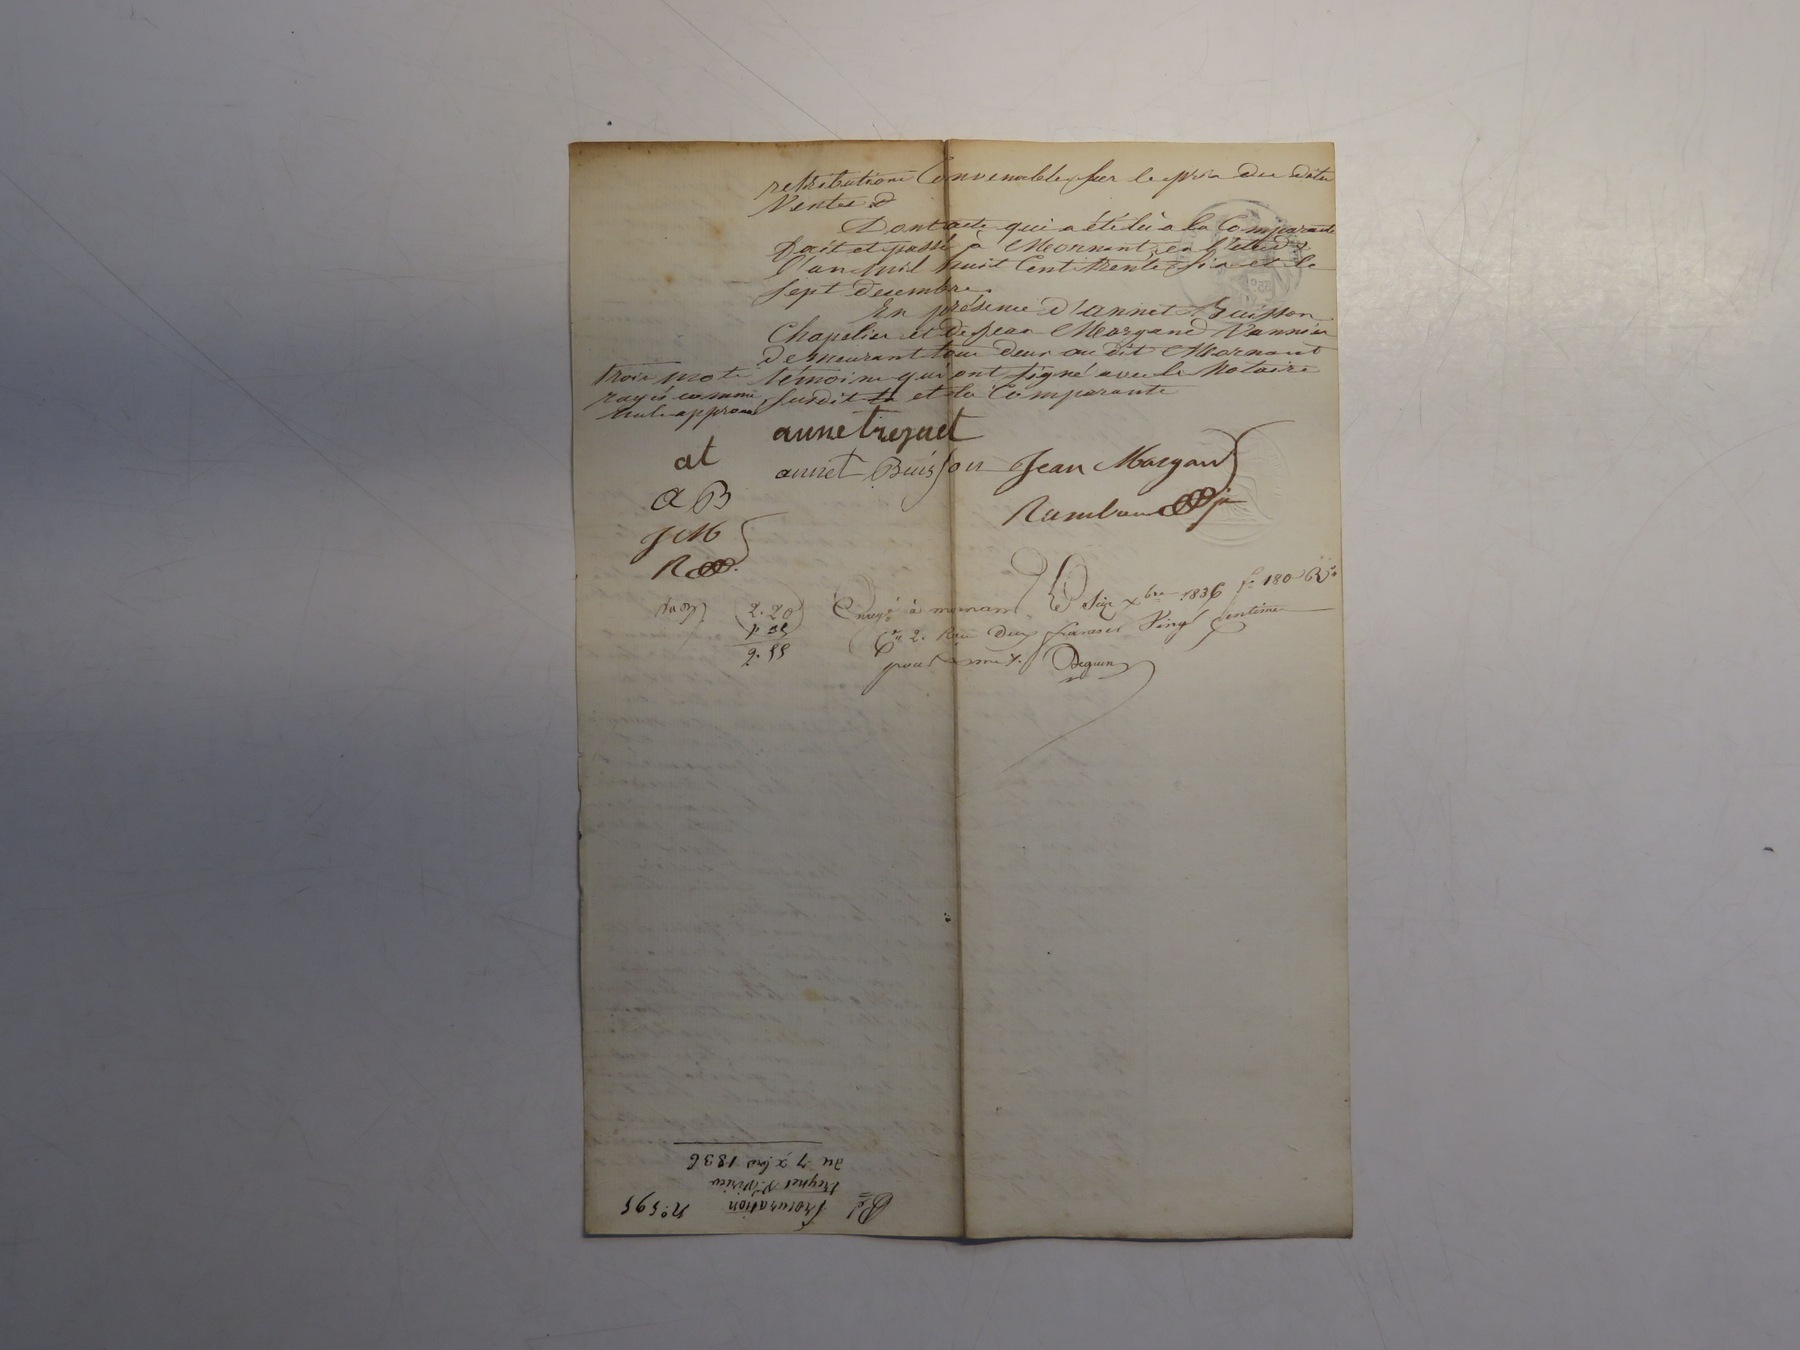 retribution Convenable sur le prix du dite
Ventes
Dont acte qui a été lu à la Comparante
fait et passé à Mornant, en l'étude,
l'an mil huit Cent trente six et le
sept decembre.
En présence d'annet Buisson
Chapelier et de Jean Margand Vannier
demeurant tous deux au dit Mornant
témoins qui ont signé avec le Notaire
susdit et la Comparante
trois mots
rayés comme
nuls approuvé
anne treynet
annet Buisson Jean Margand
at
a B
J M
R
2.20
Enregé à mornant le Seize Xbre 1836 f° 180 R°
Cn 2. Reçu Deux francs Vingt centimes
pour
Deguin
N° 595
Procuration
treynet
du 7 xbre 1836